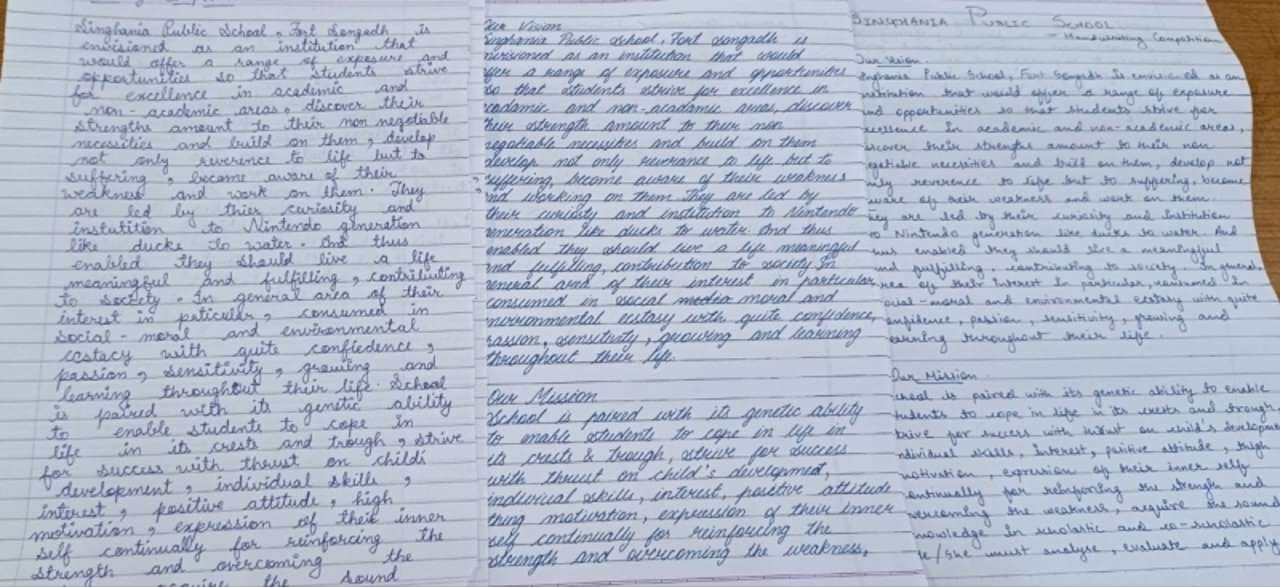 Singhania Public School, Fort Songadh is
envisioned as an institution that
would offer a range of exposure and
opportunities so that students strive
for excellence in academic and
non-academic areas, discover their
strengths amount to their non negotiable
necessities and build on them, develop
not only reverence to life but to
suffering, become aware of their
weakness and work on them. They
are led by thier curiosity and
instutition to Nintendo generation
like ducks to water. And thus
enabled they should live a life
meaningful and fulfilling, contributing
to society. In general area of their
interest in paticular, consumed in
social-moral and environmental
ecstacy with quite confiedence,
passion, sensetivity, growing and
learning throughout their life. School
is paired with its genetic ability
to enable students to cope in
life in its crests and trough, strive
for success with thrust on childs
development, individual skills,
interest, positive attitude, high
motivation, expression of their inner
self continually for reinforcing the
strength and overcoming the
acquire the sound
Our Vision
Singhania Public School, Fort Songadh is
envisioned as an institution that would
offer a range of exposure and opportunities
so that students strive for excellence in
acadamic and non-acadamic areas, discover
their strength amount to their non
negotiable necessities and build on them
develop not only reverance to life but to
suffering, become aware of their weakness
and working on them They are led by
their curiosity and institution to Nintendo
generation like ducks to water. And thus
enabled they should live a life meaningful
and fulfilling, contribution to society In
general area of their interest in particular,
consumed in social media moral and
environmental ecstasy with quite confidence,
passion, sensitivity, growing and learning
throughout their life.
Our Mission
School is paired with its genetic ability
to enable students to cope in life in
its crests & trough, strive for success
with thrust on child's development,
individual skills, interest, positive attitude
thing motivation, expression of their inner
self continually for reinforcing the
strength and overcoming the weakness,
SINGHANIA PUBLIC SCHOOL
- Handwriting Competition
Our Vision.
Singhania Public School, Fort Songadh is envisioned as an
institution that would offer a range of exposure
and opportunities so that students strive for
excellence in academic and non-academic areas,
discover their strengths amount to their non
negotiable necessities and build on them, develop not
only reverence to life but to suffering, become
aware of their weakness and work on them.
They are led by their curiosity and Institution
to Nintendo generation like ducks to water. And
thus enabled they should live a meaningful
and fulfilling, contributing to society. In general,
area of their Interest In particular, consumed In
social-moral and environmental ecstasy with quite
confidence, passion, sensitivity, growing and
learning throughout their life.
Our Mission.
School is paired with its genetic ability to enable
students to cope in life in its crests and trough
strive for success with thrust on child's development
individual skills, Interest, positive attitude, high
motivation, expression of their inner self
continually for reinforcing the strength and
overcoming the weakness, acquire the sound
knowledge In scholastic and co-scholastic
he/she must analyse, evaluate and apply